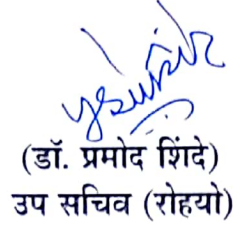 (डॉ. प्रमोद शिंदे)
उप सचिव (रोहयो)